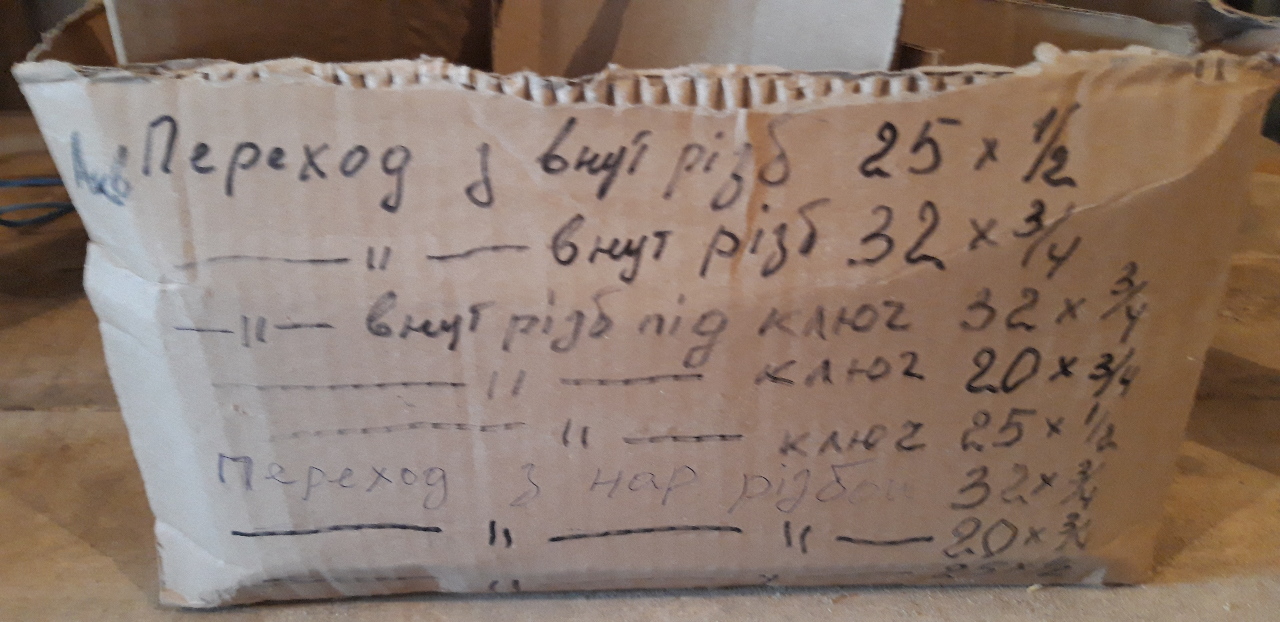 Переход з внут різб 25 x 1/2
— " — внут різб 32 x 3/4
— " — внут різб під ключ 32 x 3/4
— " — ключ 20 x 3/4
— " — ключ 25 x 1/2
Переход з нар різбою 32 x 3/4
— " — " — 20 x 3/4
— "